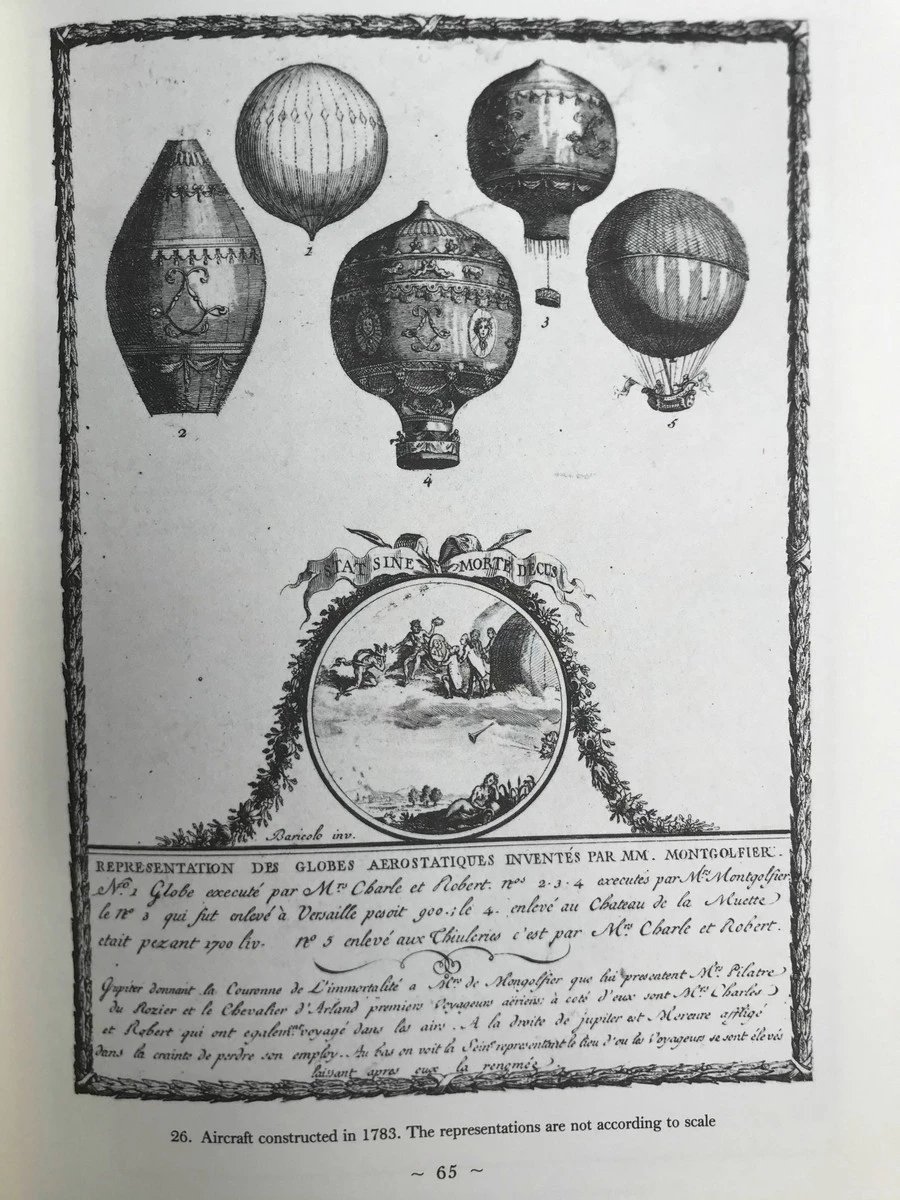 1
2
3
4
5
STAT SINE MORTE DECUS
Baricolo inv.
REPRESENTATION DES GLOBES AEROSTATIQUES INVENTÉS PAR MM. MONTGOLFIER.
No. 1 Globe executé par Mrs Charle et Robert. nos 2.3.4 executés par Mrs Montgolfier
le no 3 qui fut enlevé à Versaille pesoit 900.; le 4. enlevé au Chateau de la Muette
etait pezant 1700 liv. no 5 enlevé aux Thiuleries c'est par Mrs Charle et Robert.
Jupiter donnant la Couronne de L'immortalité a Mrs de Mongolfier que lui presentent Mrs Pilatre
du Rozier et le Chevalier d'Arland premiers Voyageurs aëriens: à coté d'eux sont Mrs Charles
et Robert qui ont egalemt voyagé dans les airs. A la droite de jupiter est Mercure affligé
dans la crainte de perdre son employ. Au bas on voit la Seine representant le lieu d'ou les Voyageurs se sont élevés
laissant apres eux la renomée
26. Aircraft constructed in 1783. The representations are not according to scale
~ 65 ~